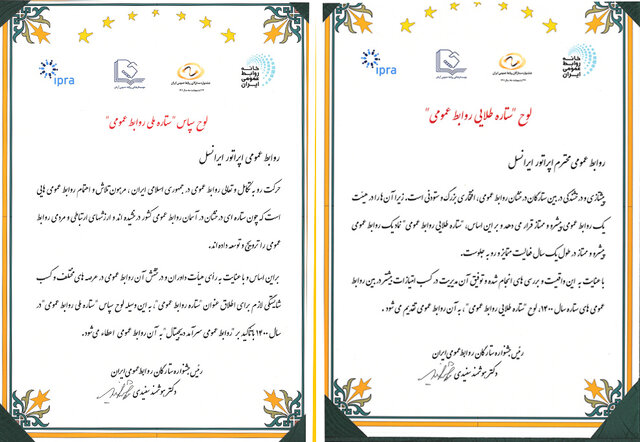 خانه
روابط
عمومی
ایران
ipra
لوح "ستاره طلایی روابط عمومی"
روابط عمومی محترم اپراتور ایرانسل
پیشتازی و درخشندگی در بین ستارگان درخشان روابط عمومی، افتخاری بزرگ و ستودنی است. زیرا آن ها را در هیئت
یک روابط عمومی پیشرو و ممتاز قرار می دهد و بر این اساس، "ستاره طلایی روابط عمومی" نماد یک روابط عمومی
پیشرو و ممتاز در طول یک سال فعالیت متمایز و رو به جلوست.
با عنایت به این واقعیت و بررسی های انجام شده و توفیق آن مدیریت در کسب امتیازات بیشتر در بین روابط
عمومی های ستاره سال ۱۴۰۰، لوح "ستاره طلایی روابط عمومی"، به آن روابط عمومی تقدیم می شود.
رئیس جشنواره ستارگان روابط عمومی ایران
دکتر هوشمند سفیدی
خانه
روابط
عمومی
ایران
ipra
لوح سپاس "ستاره ملی روابط عمومی"
روابط عمومی اپراتور ایرانسل
حرکت رو به تکامل و تعالی روابط عمومی در جمهوری اسلامی ایران، مرهون تلاش و اهتمام روابط عمومی هایی
است که چون ستاره ای درخشان در آسمان روابط عمومی کشور درخشیده اند و ارزشهای ارتباطی و مردمی روابط
عمومی را ترویج و توسعه داده اند.
بر این اساس و با عنایت به رأی هیأت داوران و درخشش آن روابط عمومی در عرصه های مختلف و کسب
شایستگی لازم برای اطلاق عنوان "ستاره روابط عمومی"، به این وسیله لوح سپاس "ستاره ملی روابط عمومی" در
سال ۱۴۰۰ با تاکید بر "روابط عمومی سرآمد دیجیتال" به آن روابط عمومی اعطاء می شود.
رئیس جشنواره ستارگان روابط عمومی ایران
دکتر هوشمند سفیدی